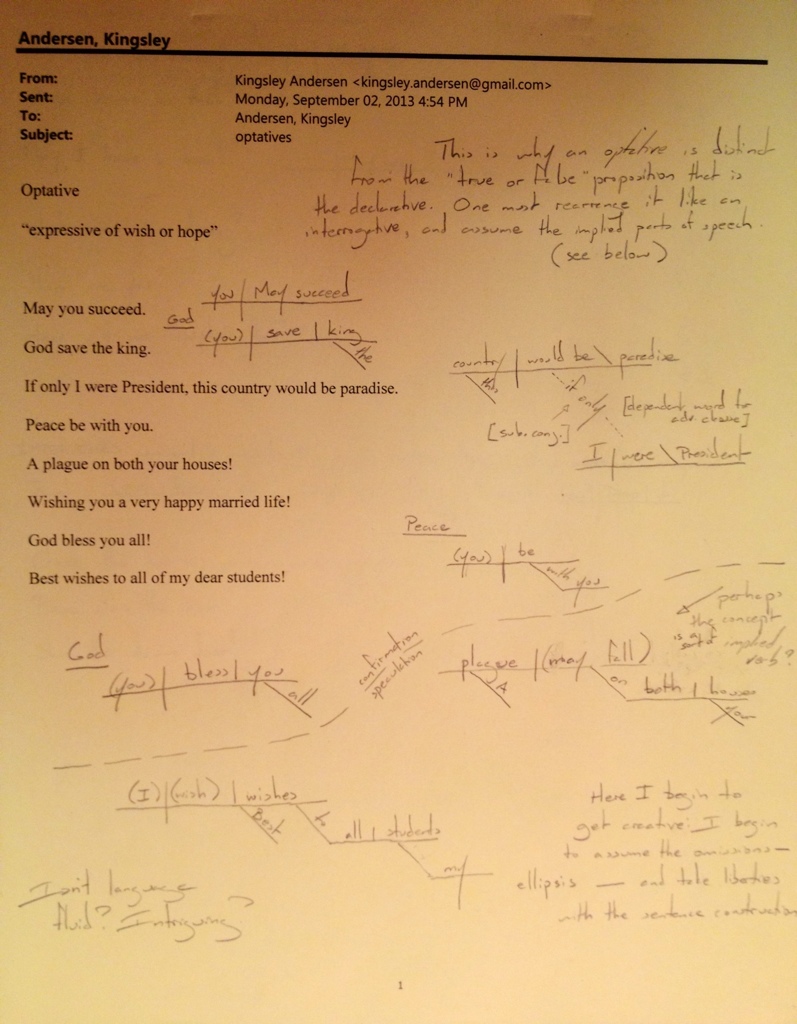 Andersen, Kingsley
From: Kingsley Andersen <kingsley.andersen@gmail.com>
Sent: Monday, September 02, 2013 4:54 PM
To: Andersen, Kingsley
Subject: optatives
This is why an optative is distinct
from the "true or false" proposition that is
the declarative. One must rearrence it like an
interrogative, and assume the implied parts of speech.
(see below)
Optative
"expressive of wish or hope"
you | May succeed
May you succeed.
God
(you) | save | king
the
God save the king.
country | would be \ paradise
this
if only
[dependent word for
adv. clause]
[sub. conj.]
I | were \ President
If only I were President, this country would be paradise.
Peace be with you.
A plague on both your houses!
Wishing you a very happy married life!
God bless you all!
Best wishes to all of my dear students!
Peace
(you) | be
with you
perhaps
the concept
is a sort of implied
verb?
God
(you) | bless | you
all
confirmation
speculation
plague | (may fall)
A
on
both | houses
your
(I) | (wish) | wishes
Best
to
all | students
my
Here I begin to
get creative: I begin
to assume the omissions—
ellipsis — and take liberties
with the sentence construction
Isn't language
fluid? Intriguing?
1